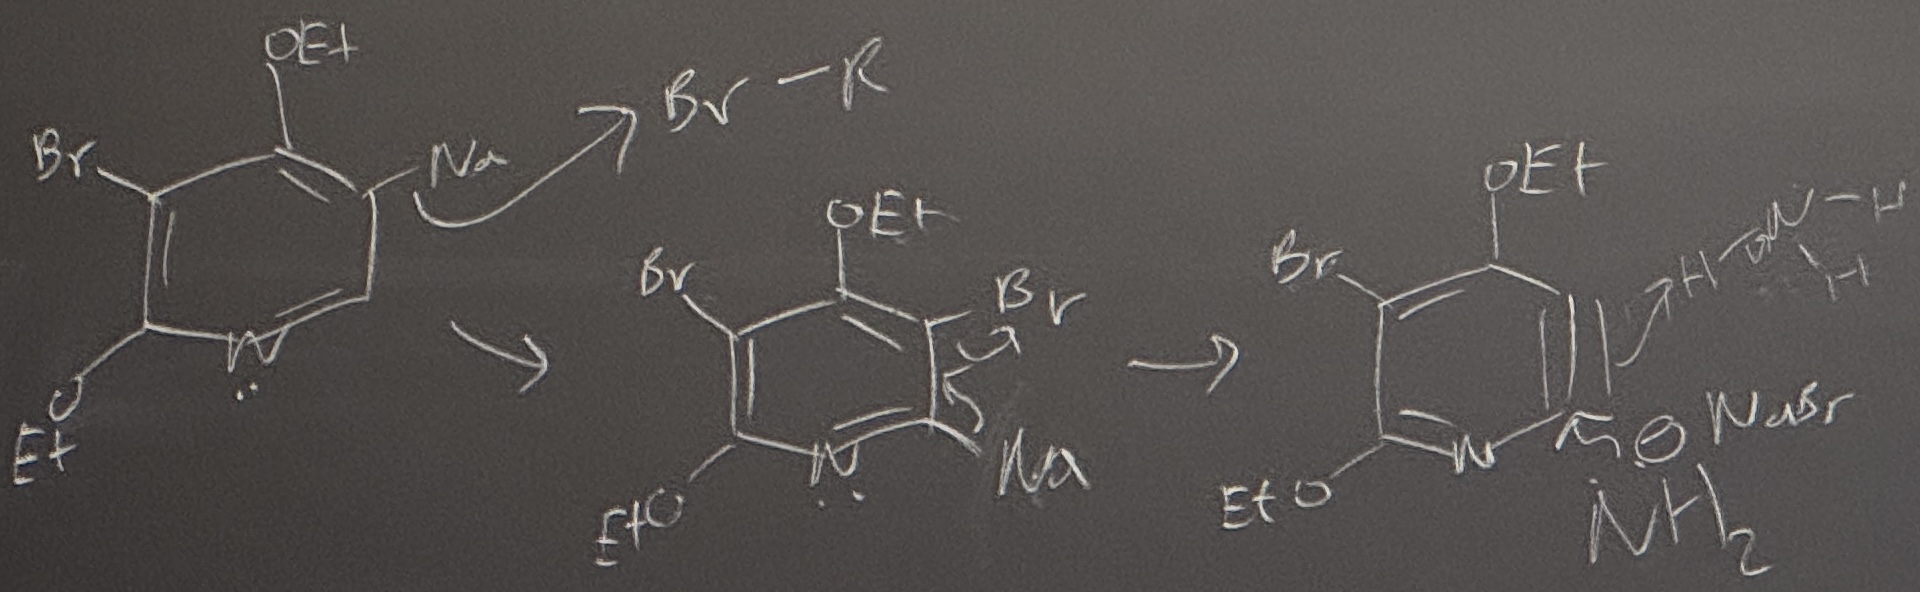 OEt
Br
Na
N
O
Et
Br – R
OEt
Br
Br
N
EtO
Na
OEt
Br
H N – H
H
N
EtO
NaBr
NH2